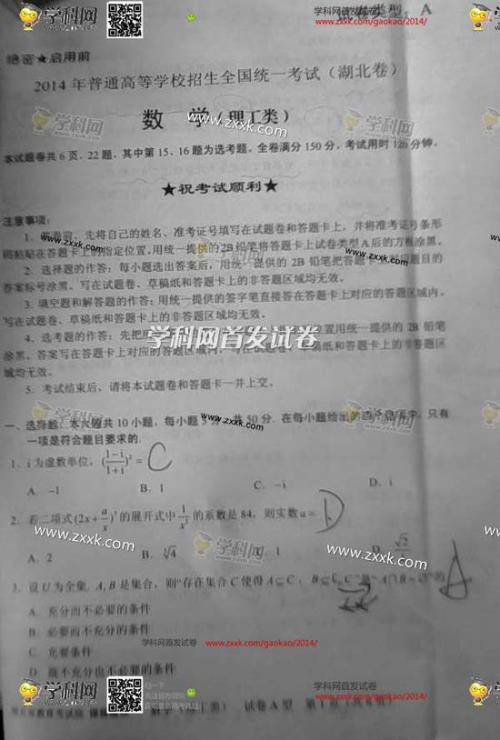 学科网首发试卷
www.zxxk.com/gaokao/2014/
试卷类型:A
绝密★启用前
2014年普通高等学校招生全国统一考试(湖北卷)
数 学(理工类)
本试题卷共6页,22题,其中第15、16题为选考题。全卷满分150分。考试用时120分钟。
★祝考试顺利★
注意事项:
1. 答题前,先将自己的姓名、准考证号填写在试题卷和答题卡上,并将准考证号条形
码粘贴在答题卡上的指定位置。用统一提供的2B铅笔将答题卡上试卷类型A后的方框涂黑。
2. 选择题的作答:每小题选出答案后,用统一提供的2B铅笔把答题卡上对应题目的
答案标号涂黑。写在试题卷、草稿纸和答题卡上的非答题区域均无效。
3. 填空题和解答题的作答:用统一提供的签字笔直接答在答题卡上对应的答题区域内。
写在试题卷、草稿纸和答题卡上的非答题区域均无效。
4. 选考题的作答:先把 置用统一提供的2B铅笔
涂黑。答案写在答题卡上对应的答题区域内,写在试题卷、草稿纸和答题卡上的非答题区
域均无效。
学科网首发试卷
5. 考试结束后,请将本试题卷和答题卡一并上交。
一、选择题:本大题共10小题,每小题5分,共50分.在每小题给出的四个选项中,只有
一项是符合题目要求的.
1. i为虚数单位,(\frac{1-i}{1+i})²= C
A. -1 B. 1 C. -i D. i
2. 若二项式(2x+\frac{a}{x})⁷的展开式中\frac{1}{x³}的系数是84,则实数a= D
A. 2 B. ⁵√4 C. 1 D. \frac{√2}{4}
3. 设U为全集,A,B是集合,则“存在集合C使得A⊆C,B⊆∁ᵤC”是“A∩B=∅”的 A
A. 充分而不必要的条件
B. 必要而不充分的条件
C. 充要条件
D. 既不充分也不必要的条件
学科网首发试卷
www.zxxk.com/gaokao/2014/
试卷A型
学科网
www.zxxk.com